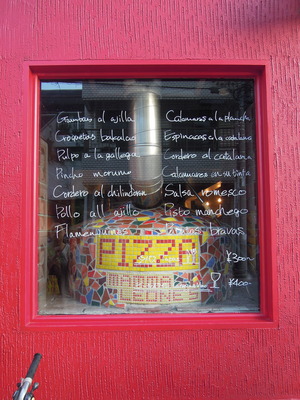 Gambas al ajillo
Croquetas bakalao
Pulpo a la gallega
Pincho moruno
Cordero al chilindron
Pollo all ajillo
Flamenquines
Calamares a la plancha
Espinacas a la catalana
Cordero al catalana
Calamares en su tinta
Salsa romesco
Pisto manchego
Patatas bravas
PIZZA
¥3000~
¥400~